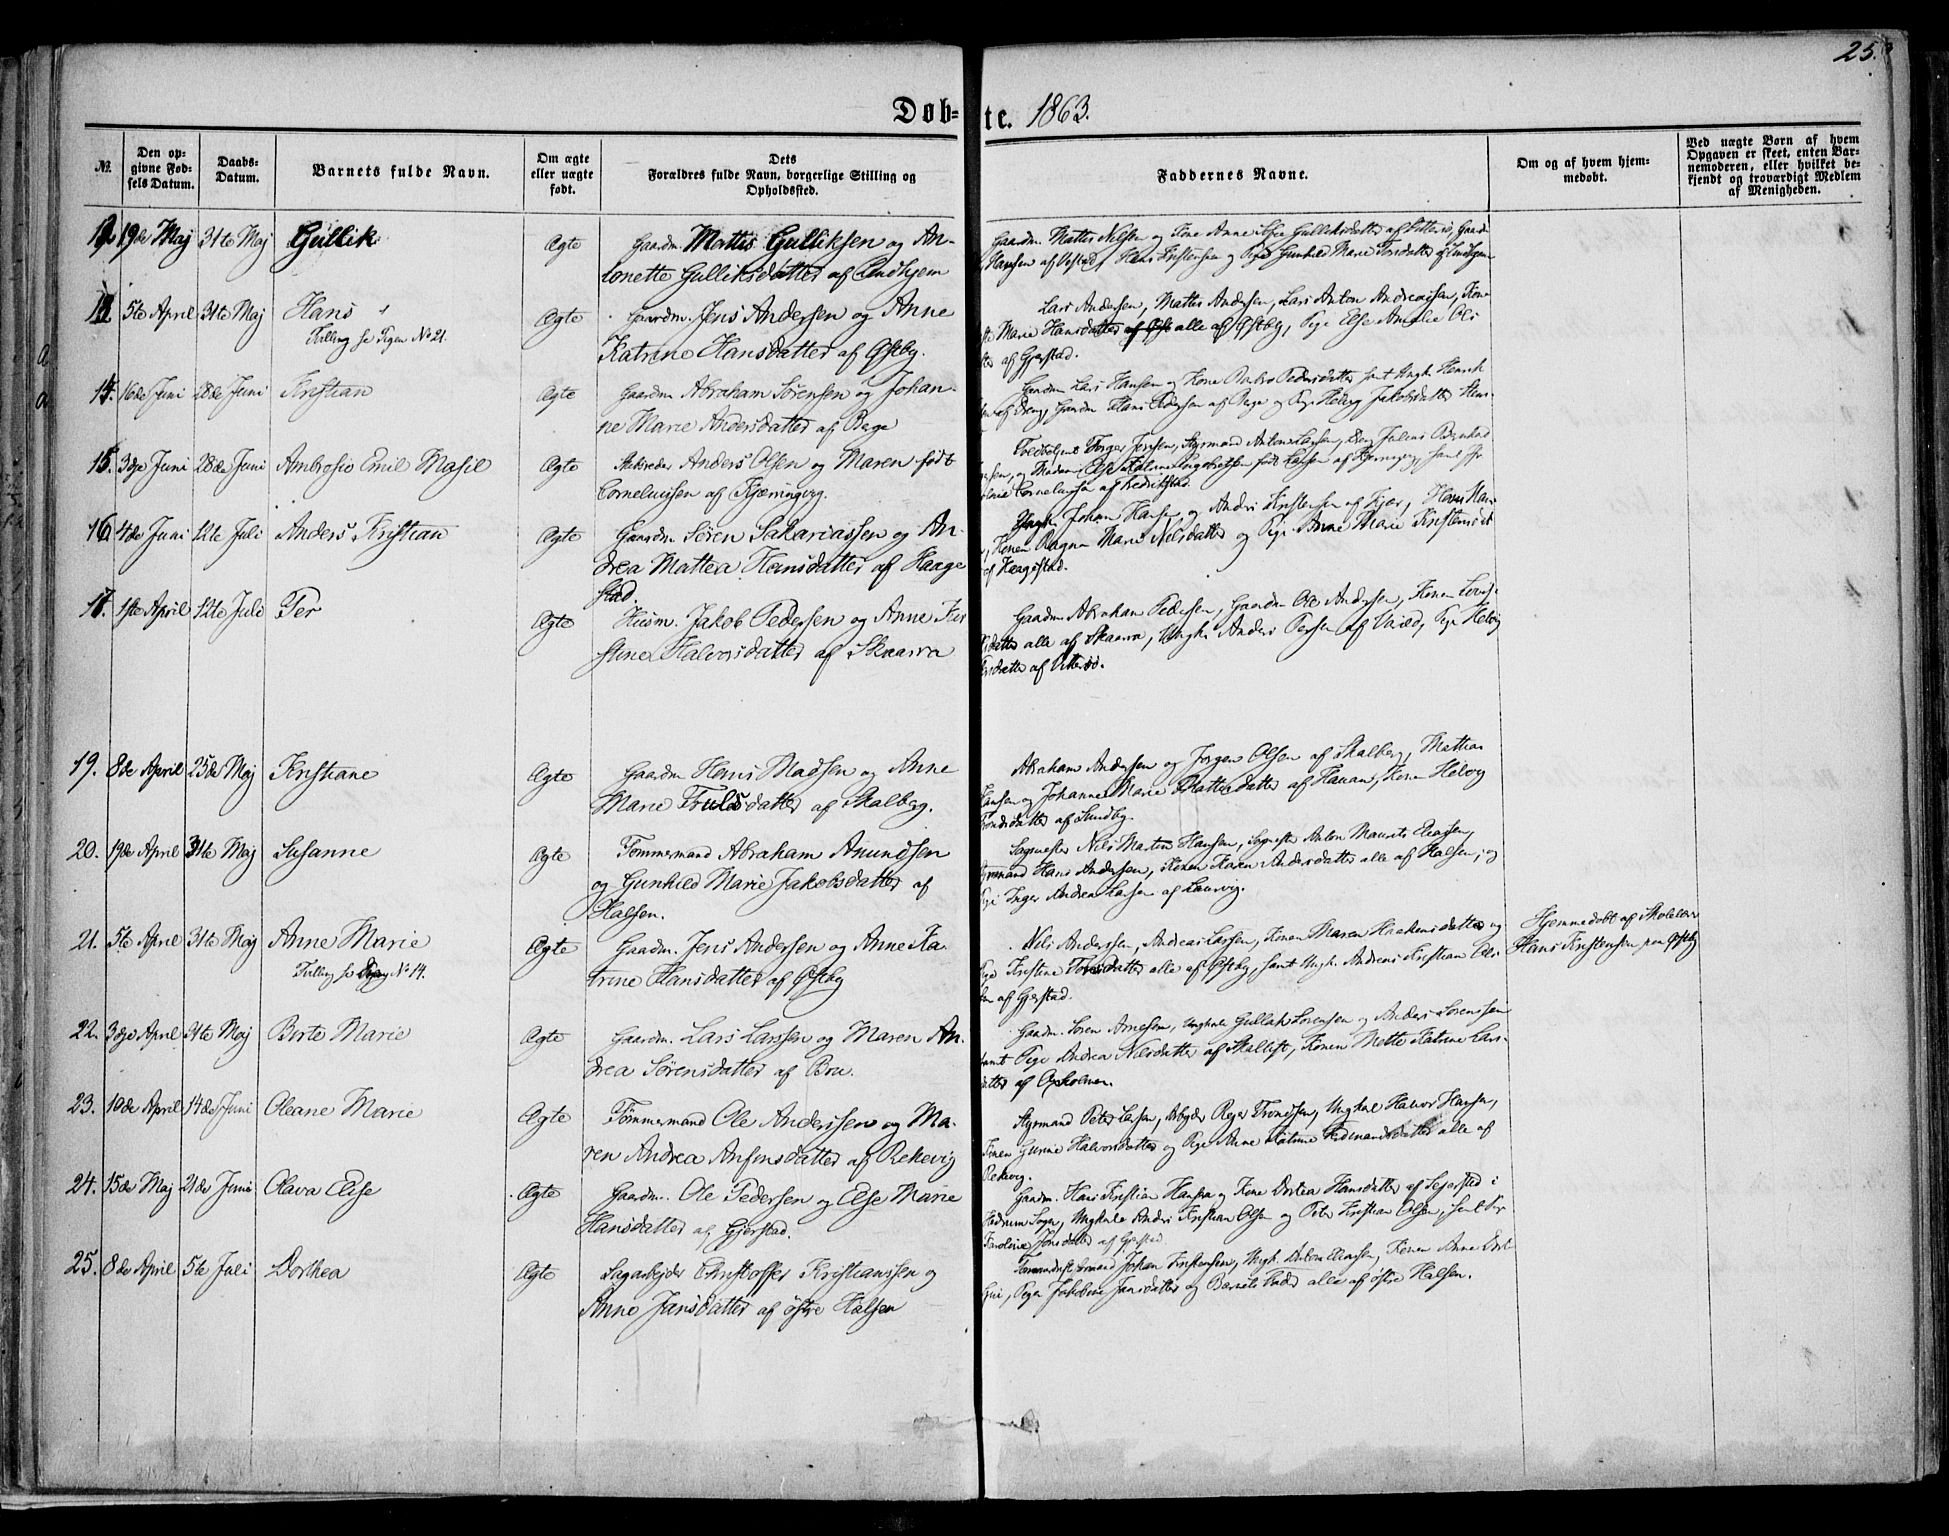 25.
Døb-
te. 1863.
№.
Den op-
givne Fød-
sels Datum.
Daabs-
Datum.
Barnets fulde Navn.
Om ægte
eller uægte
født.
Dets
Forældres fulde Navn, borgerlige Stilling og
Opholdssted.
Faddernes Navne.
Om og af hvem hjem-
medøbt.
Ved uægte Børn af hvem
Opgaven er skeet, enten Bar-
nemoderen, eller hvilket be-
kjendt og troværdigt Medlem
af Menigheden.
19de Maj 31te Maj Gullik Ægte Gaardm. Mattis Gulliksen og An-
tonette Gulliksdatter af Lindhjem
Gaardm. Mattis Nilsen og Kone Anne Gulliksdatter af
Hansen af Hans Kristensen og Pige Gunhild Marie
5te April 31te Maj Hans Ægte Gaardm. Jens Andersen og Anne
Tvilling se Pigen No 21.
Katrine Hansdatter af Østby.
Lars Andersen, Mattis Andersen, Lars Anton Andreassen, Kone
Marie Hansdatter alle af Østby, Pige Else Amalie Ols
af Gjerstad.
14. 16de Juni 28de Juni Kristian Ægte Gaardm Abraham Sørensen og Johan-
ne Marie Andersdatter af Berge
Gaardm Lars Hansen og Kone Pedersdatter samt Ungk. Henrik
Gaardm Hans Pedersen af Berge og Pige Helvig Jakobsdatter
15. 3dje Juni 28de Juni Ambrosio Emil Masil Ægte Anders Olsen og Maren født
Corneliussen af Kjæringvig.
Jensen, Styrmand Anton Larsen, Dreng Julius
og Madam Else født Larsen af Kjæringvig, samt
Corneliusen af Fredrikstad.
16. 4de Juni 12te Juli Anders Kristian Ægte Gaardm Søren Sakariassen og An-
drea Mattea Hansdatter af Haage
stad.
Ungk. Johan Hansen og Anders Kristensen af Kjær,
Konen Marie Nilsdatter og Pige Anne Marie
af Haagestad.
17. 1ste April 12te Juli Per Ægte Husm. Jakob Pedersen og Anne Kir
stine Halvorsdatter af Skaarva
Gaardm Abraham Pedersen, Gaardm Ole Andersen, Konen Lovise
datter alle af Skaarva, Ungk. Anders Persen af Pige Helvig
datter af Vittersø.
19. 8de April 25de Maj Kristiane Ægte Gaardm Hans Madsen og Anne
Marie Trulsdatter af Skalberg.
Abraham Andersen og Jørgen Olsen af Skalberg, Mathias
Hansen og Johanne Marie datter af Havan, Konen Helvig
datter af Sundby.
20. 19de April 31te Maj Susanne Ægte Tømmermand Abraham Amundsen
og Gunhild Marie Jakobsdatter af
Halsen.
Sagmester Nils Martin Hansen, Sagmester Anton Maurits Eliassen,
Hans Andersen, Konen Karen Andersdatter alle af Halsen, og
Inger Andrea Larsen af Laurvig.
21. 5te April 31te Maj Anne Marie Ægte Gaardm. Jens Andersen og Anne Ka
Tvilling se No 14.
trine Hansdatter af Østby
Nils Anderssen, Andreas Larssen, Konen Maren Haakensdatter og
Pige Kristine Torsdatter alle af Østby, samt Ungk. Andreas Kristian Ols
af Gjerstad.
Hjemmedøbt af Skolelær
Hans Kristensen paa Østby
22. 3dje April 31te Maj Berte Marie Ægte Gaardm. Lars Larssen og Maren An-
drea Sørensdatter af Bru.
Gaardm. Søren Arnesen, Ungkarle Gullak Sørensen og Anders Sørenssen
samt Pige Andrea Nilsdatter af Skallist, Konen Mette Katrine Lars-
datter af Opholmen.
23. 10de April 14de Juni Oleane Marie Ægte Tømmermand Ole Anderssen og Ma-
ren Andrea Ansensdatter af Rekevig
Styrmand Peter Larsen, Arbejder Reier Trondsen, Ungkarl Halvor Hansen,
Konen Gurine Halvorsdatter og Pige Anne Katrine Ferdinandsdatter alle af
Rekevig.
24. 15de Maj 21de Juni Olava Elise Ægte Gaardm. Ole Pedersen og Else Marie
Hansdatter af Gjerstad.
Gaardm. Hans Kristian Hansen og Kone Dortea Hansdatter af Sejerstad i
Hedrum Sogn, Ungkarle Anders Kristian Olsen og Peter Kristian Olsen, samt
Karoline Jonsdatter af Gjerstad
25. 8de April 5te Juli Dorthea Ægte Sagarbejder Christoffer Kristianssen og
Anne Jansdatter af østre Halsen
Johan Kristensen, Ungk. Anton Eliassen, Konen Anne
Pigen Jakobine Jansdatter og Barnets Fader alle af østre Halsen.